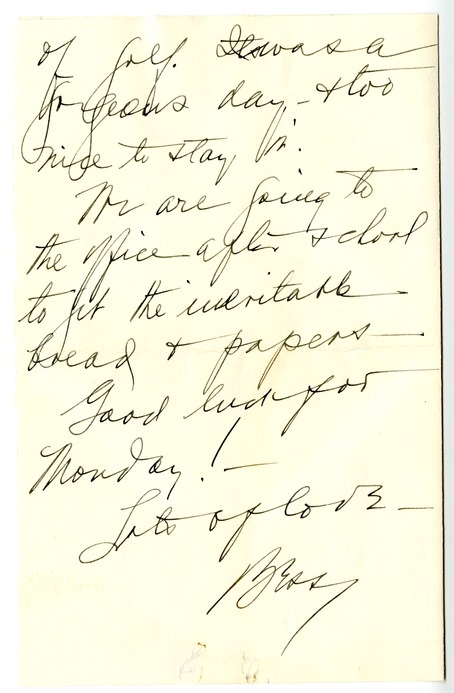 of golf. It was a
gorgeous day - & too
nice to stay in.
We are going to
the office after school
to get the inevitable
bread & papers -
Good luck for
Monday! -
Lots of love -
Bess